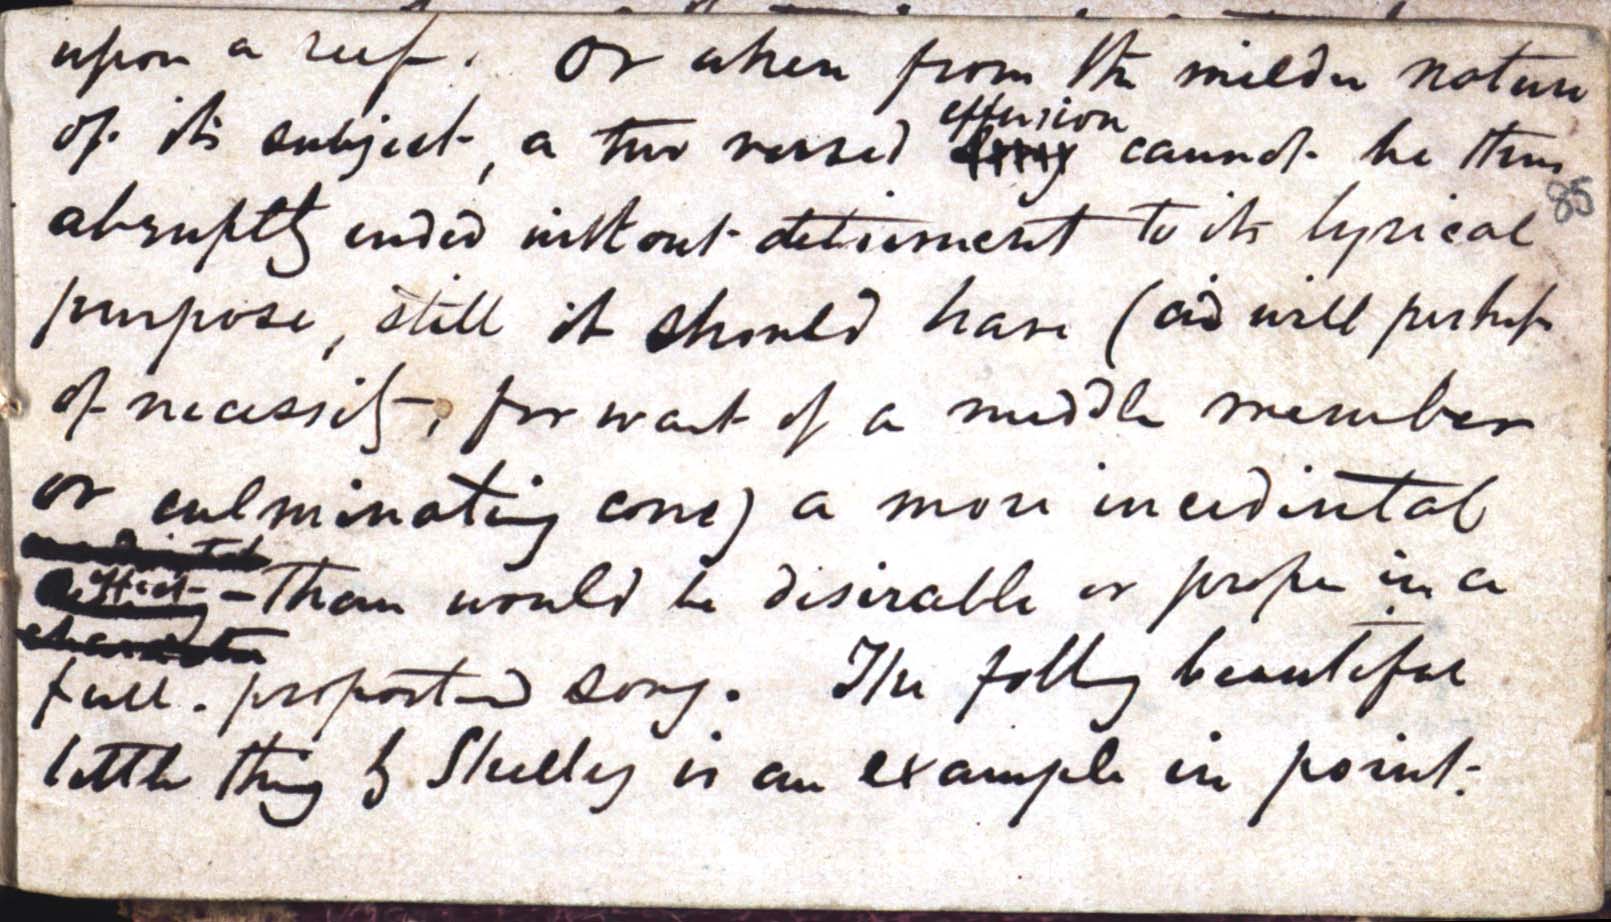 upon a reef. Or when from the milder nature
of its subject, a two versed effusion cannot be thus
85
abruptly ended without detriment to its lyrical
purpose, still it should have (and will perhaps
of necessity, for want of a middle member
or culminating cone) a more incidental
effect - than would be desirable or proper in a
character
full-proportioned song. The follg beautiful
little thing by Shelley is an example in point: